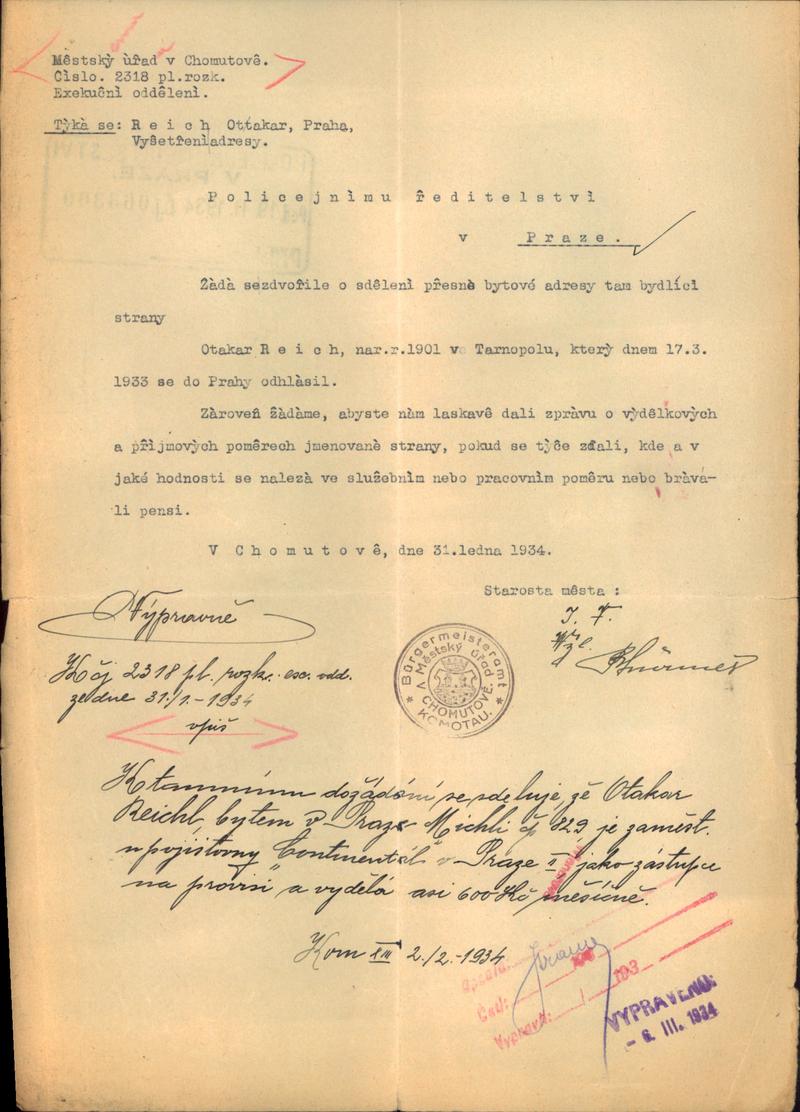 Městský ùřad v Chomutově.
Čislo. 2318 pl.rozk.
Exekučni odděleni.
Týkà se: R e i c h Ottakar, Praha,
Vyšetřeniadresy.
P o l i c e j n ì m u ř e d i t e l s t v ì
v P r a z e .
Žàdà sezdvořile o sděleni přesnè bytové adresy tam bydlìcì
strany
Otakar R e i c h, nar.r.1901 v Tarnopolu, který dnem 17.3.
1933 se do Prahy odhlàsil.
Zàroveň žàdàme, abyste nàm laskavě dali zpràvu o výdělkových
a přìjmových poměrech jmenované strany, pokud se týče zdali, kde a v
jaké hodnosti se nalezà ve služebnìm nebo pracovnìm poměru nebo bràvà-
li pensi.
V C h o m u t o v ě, dne 31.ledna 1934.
Starosta města :
Výpravně
K čj 2318 pl. rozk. esc. odd.
ze dne 31./1.-1934
vpiš
Bürgermeisteramt
Městský úřad
V CHOMUTOVĚ.
KOMOTAU.
K tamnímu dožádání se sděluje, že Otakar
Reichl bytem v Praze Michli čp 829 je zaměst.
u pojišťovny "Continentál" v Praze II jako zástupce
na provisi a vydělá asi 600 Kč měsíčně.
Kom XIII 2./2.-1934
Opsáno:
Četl: 193
Vypravil:
VYPRAVENO:
- 6. III. 1934